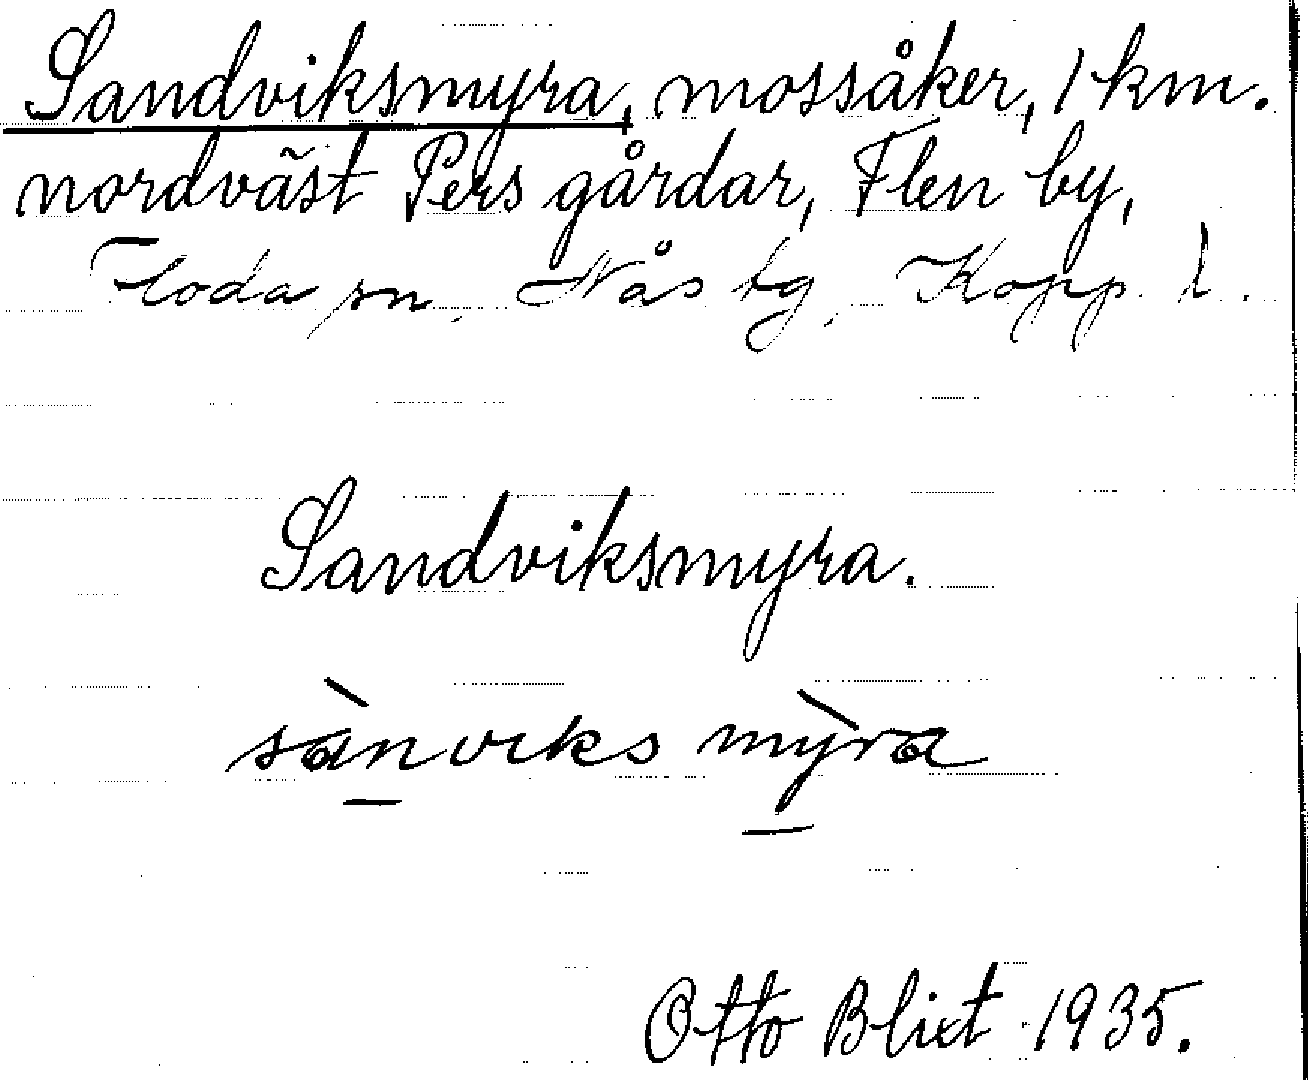 Sandviksmyra, mossåker, 1 km.
nordväst Pers gårdar, Flen by,
Floda sn, Nås tg, Kopp. l.
Sandviksmyra.
sànviks mỳra
Otto Blixt 1935.